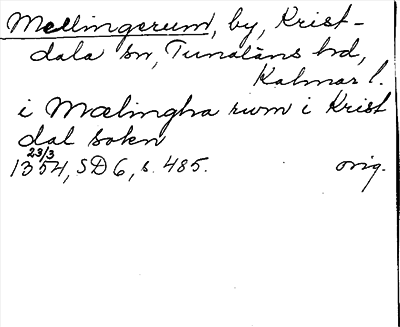 Mellingerum, by, Krist-
dala sn, Tunaläns hd,
Kalmar l.
i Mælingha rwm i Krist
dal sokn
23/3
1354, SD 6, s. 485. orig.